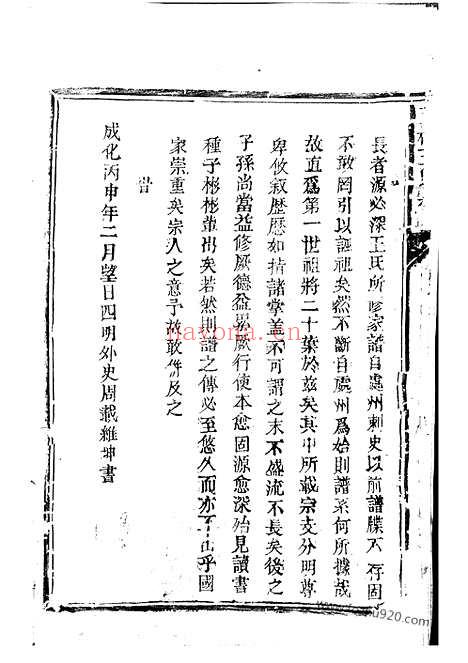 長者源必深王氏所修家譜自處州刺史以前譜牒不存固
不敢罔引以誣祖矣然不斷自處州爲始則譜系何所據哉
故直爲第一世祖將二十葉於茲矣其中所載宗支分明尊
卑攸敘歷歷如指諸掌蓋不可謂之末不盛流不長矣後之
子孫尚當益修厥德益厥行使本愈固源愈深始見讀書
種子彬彬輩出矣若然則譜之傳必至悠久而亦不出乎國
家崇重矣宗人之意予故敢併及之
旹
成化丙申年二月望日四明外史周載維坤書
Hayona.cn
nayou920.com